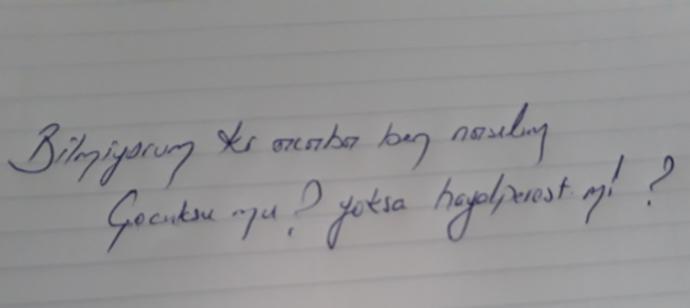 Bilmiyorum ki acaba ben nasılım
Çocuksu mu? yoksa hayalperest mi?